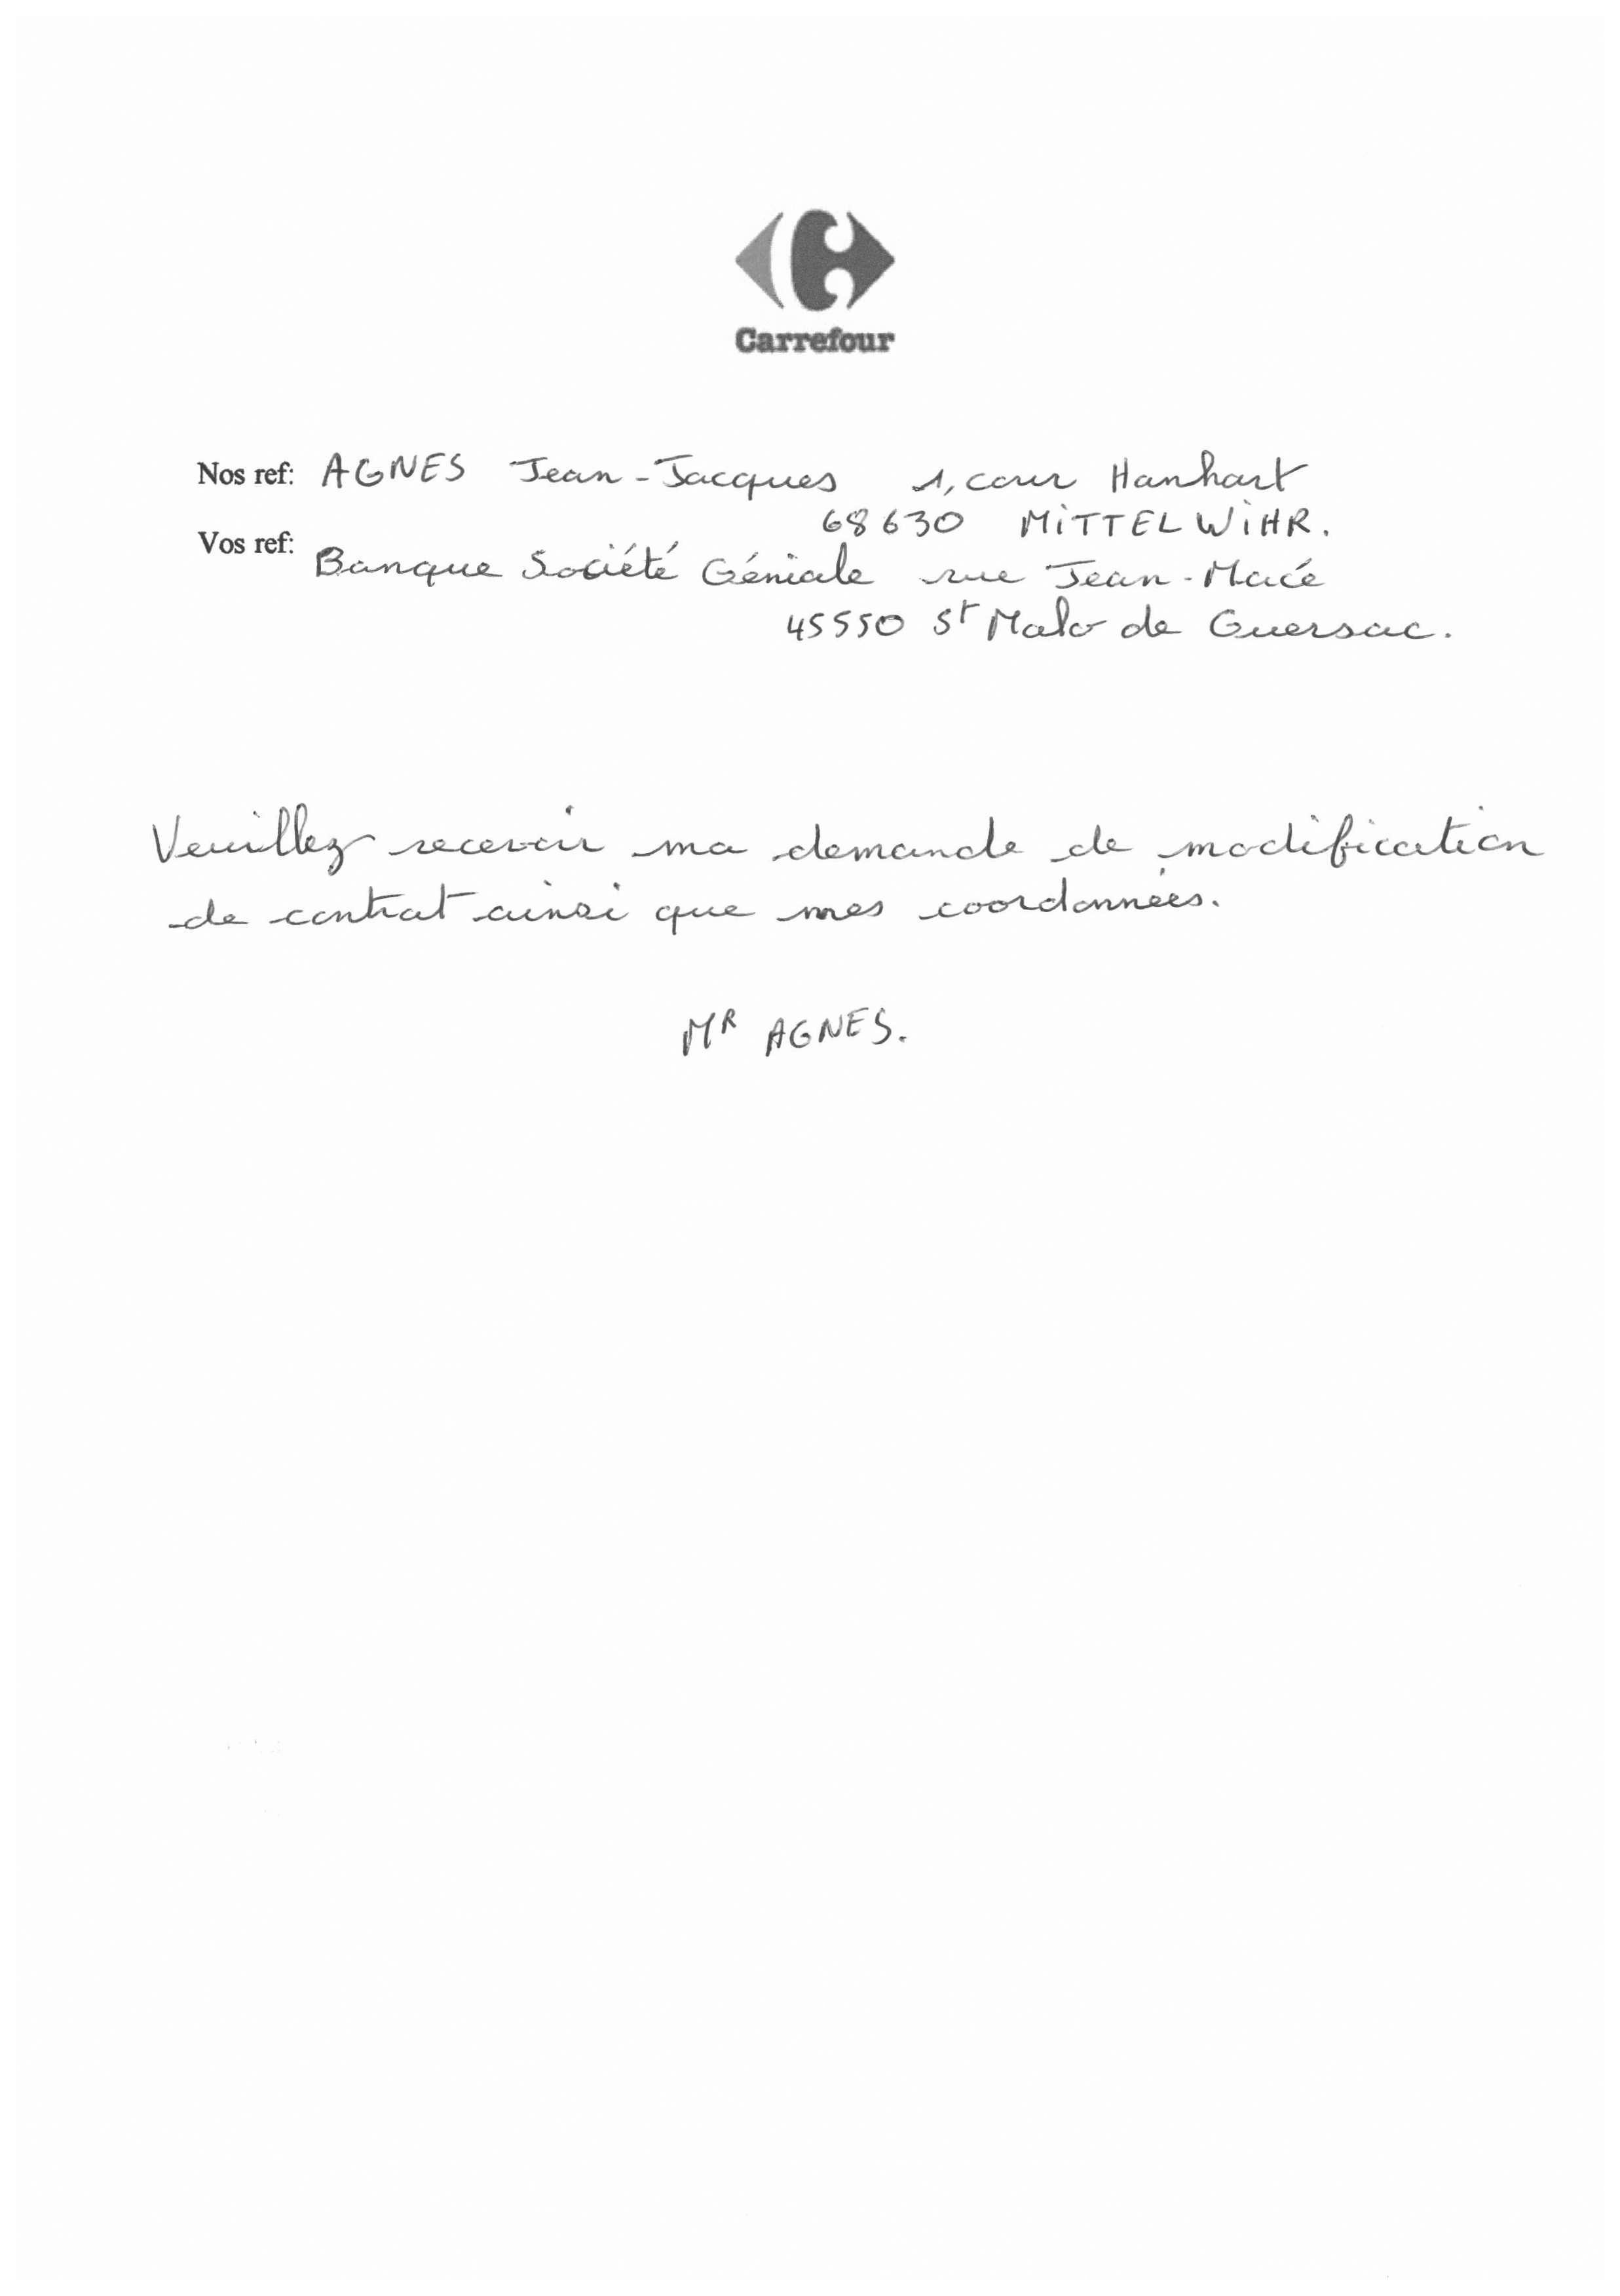 Carrefour
Nos ref: AGNES Jean-Jacques 1, cour Hanhart
68630 MiTTELWiHR.
Vos ref:
Banque Société Géniale rue Jean-Macé
45550 St Malo de Guersac.
Veuillez recevoir ma demande de modification
de contrat ainsi que mes coordonnées.
MR AGNES.